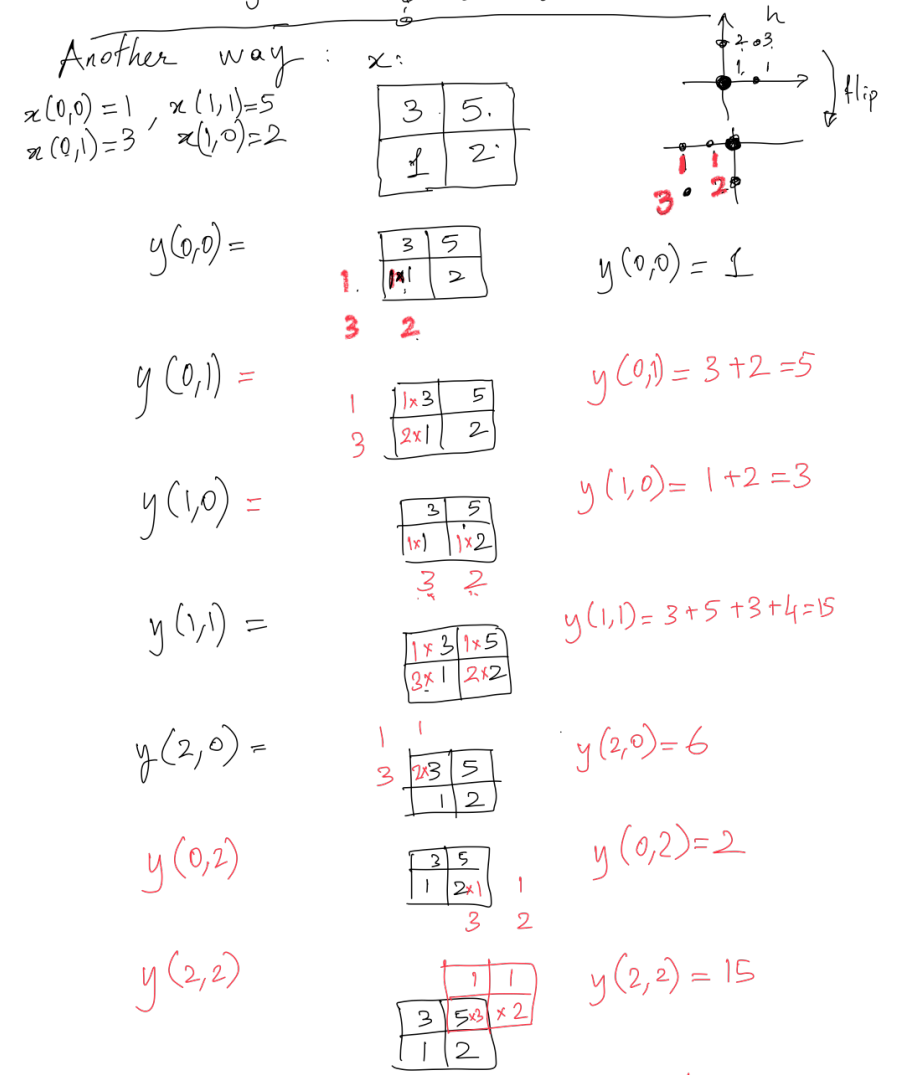 Another way : x:
h
2 3
1 1
flip
x(0,0)=1 , x(1,1)=5
x(0,1)=3 x(1,0)=2
3 5.
1 2
1 1
3 2
y(0,0)=
3 5
1. 1x1 2
3 2
y(0,0) = 1
y(0,1) =
1 1x3 5
3 2x1 2
y(0,1) = 3+2=5
y(1,0) =
3 5
1x1 1x2
3 2
y(1,0)= 1+2=3
y(1,1) =
1x3 1x5
3x1 2x2
y(1,1)= 3+5+3+4=15
y(2,0) =
1 1
3 2x3 5
1 2
y(2,0)=6
y(0,2)
3 5
1 2x1 1
3 2
y(0,2)=2
y(2,2)
1 1
3 5x3 x2
1 2
y(2,2) = 15